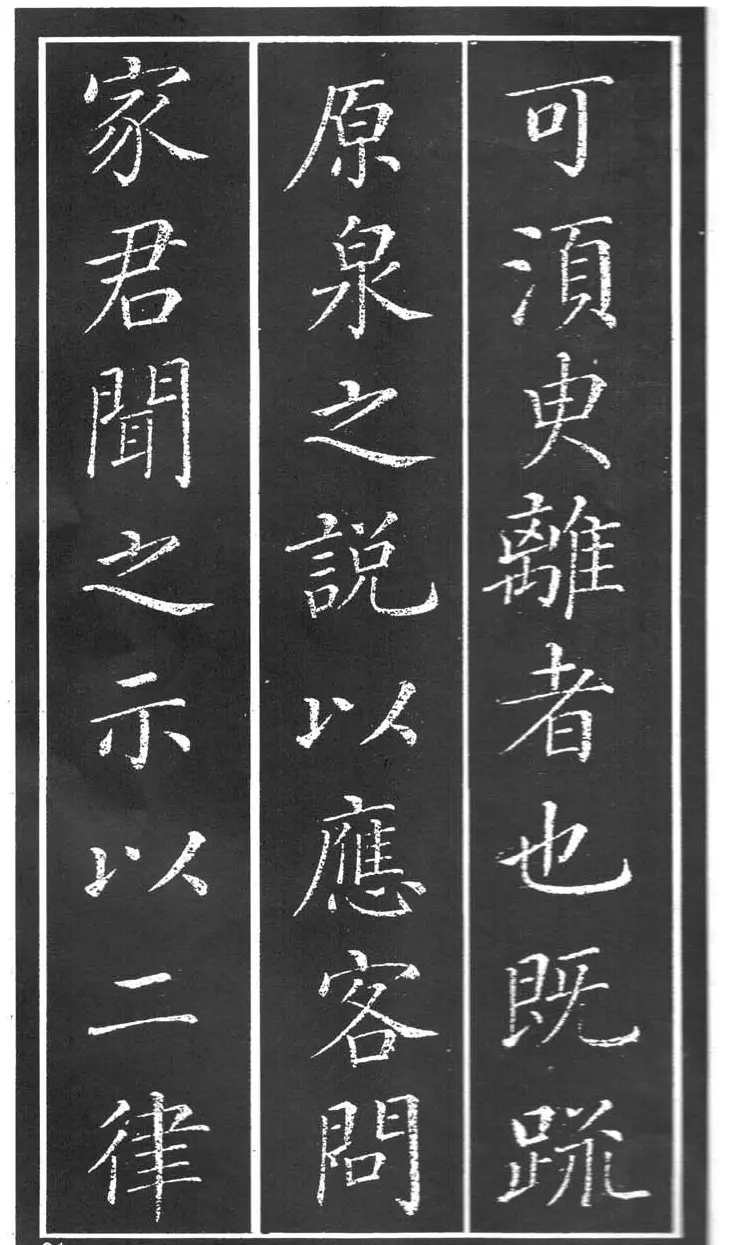 可湏臾離者也既䟽
原泉之説以應客問
家君聞之示以二律